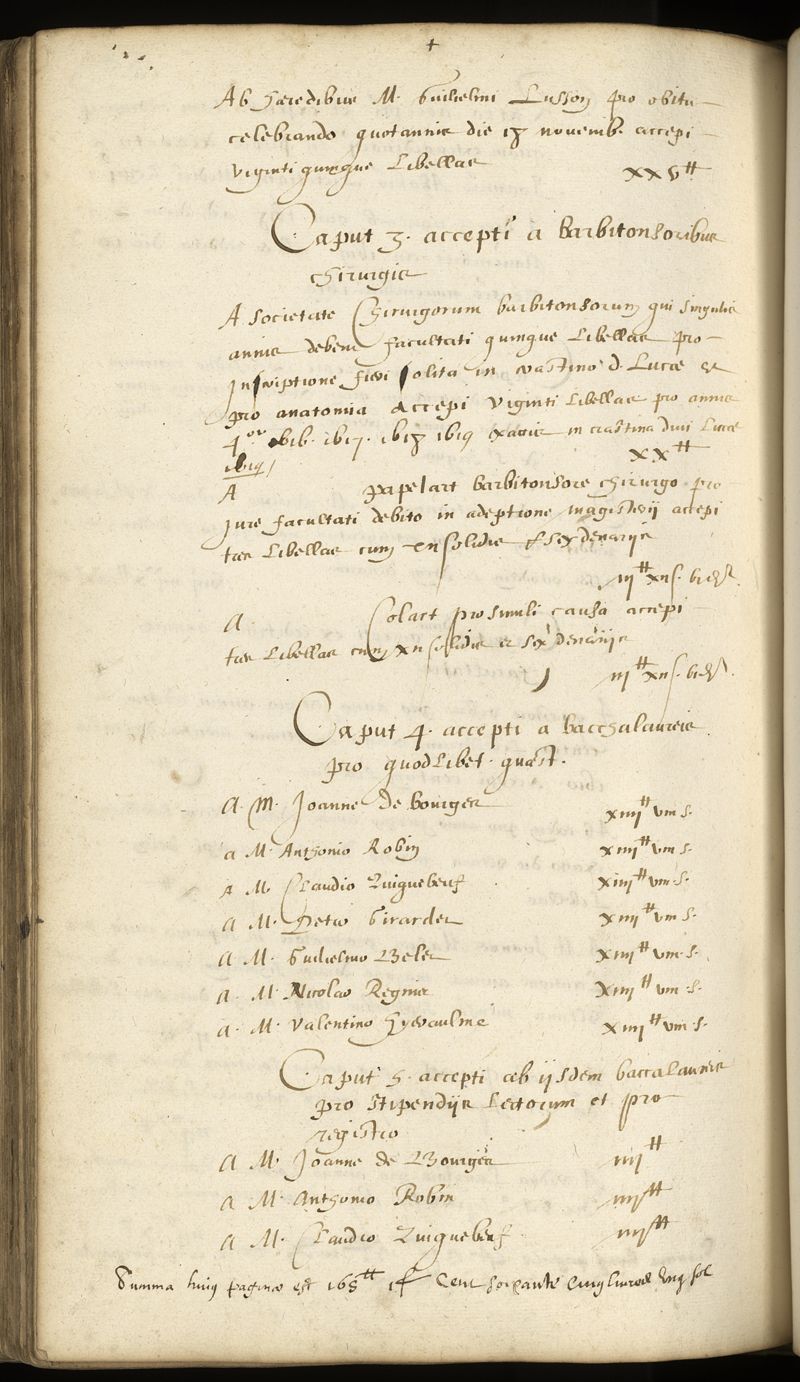 +
Ab hæredibus M. Guilielmi Lusson pro obitu
celebrando quotannis die 17 novemb. accepi
viginti quinque libellas xxv ₶
Caput 3. accepti a barbitonsoribus
chirurgis
A societate Chirurgorum barbitonsorum qui singulis
annis debent facultati quinque libellas pro
Inscriptione fieri solita in crastino d. Lucæ et
pro anatomia accepi viginti libellas pro annis
4or 1616. 1617. 1618 1619 exactis in crastina divi Lucæ
1619 xx ₶
A papelart barbitonsore chirurgo pro
jure facultati debito in adeptione magisterij accepi
tres libellas cum xii solidis & sex denarijs
iii ₶ xii s. vi d.
A Colart pro simili causa accepi
tres libellas cum xii solidis et sex denarijs
iii ₶ xii s. vi d.
Caput 4. accepti a bacchalaureis
pro quodlibet. quæst.
A M. Joanne de bourges xiiii ₶ viii s.
a M. Anthonio Robin xiiii ₶ viii s.
A M. Claudio Quiquebeuf xiiii ₶ viii s.
A M. Petro Girardet xiiii ₶ viii s.
A M. Guilielmo Belet xiiii ₶ viii s.
A M. Nicolao Regnier xiiii ₶ viii s.
A M. Valentino Hyeraulme xiiii ₶ viii s.
Caput 5. accepti ab ijsdem baccalaureis
pro stipendijs Lectorum et pro
registro
A M. Joanne de Bourges iiii ₶
A M. Anthonio Robin iiii ₶
A M. Claudio Quiquebeuf iiii ₶
Summa huius paginæ est 165 ₶ 1 s Cent soixante cinq livres ung sol